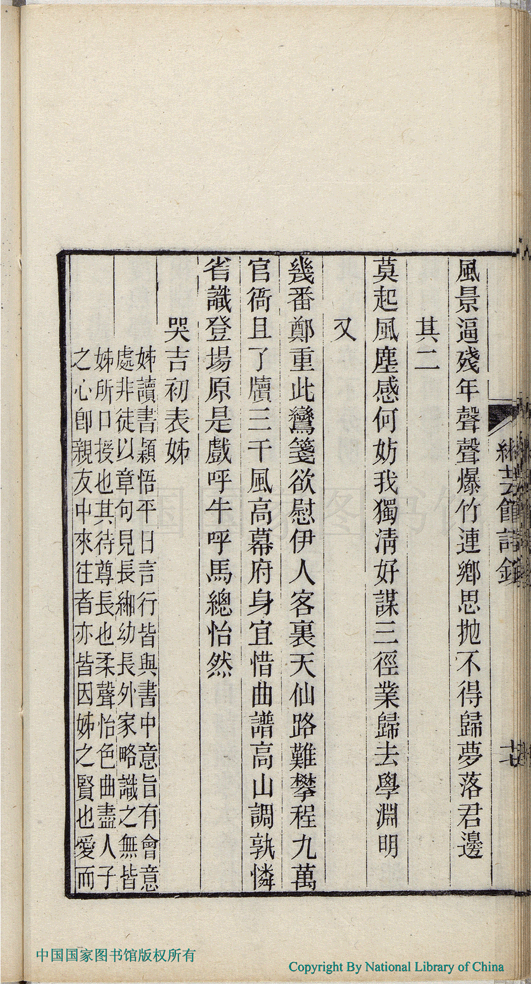 風景逼殘年聲聲爆竹連鄉思抛不得歸夢落君邊
其二
莫起風塵感何妨我獨清好謀三徑業歸去學淵明
又
幾番鄭重此鸞箋欲慰伊人客裏天仙路難攀程九萬
官衙且了牘三千風高幕府身宜惜曲譜高山調孰憐
省識登場原是戲呼牛呼馬總怡然
哭吉初表姊
姊讀書穎悟平日言行皆與書中意旨有會意
處非徒以章句見長緗幼長外家略識之無皆
姊所口授也其待尊長也柔聲怡色曲盡人子
之心卽親友中來往者亦皆因姊之賢也愛而
緗芸館詩鈔
中国国家图书馆版权所有
Copyright By National Library of China